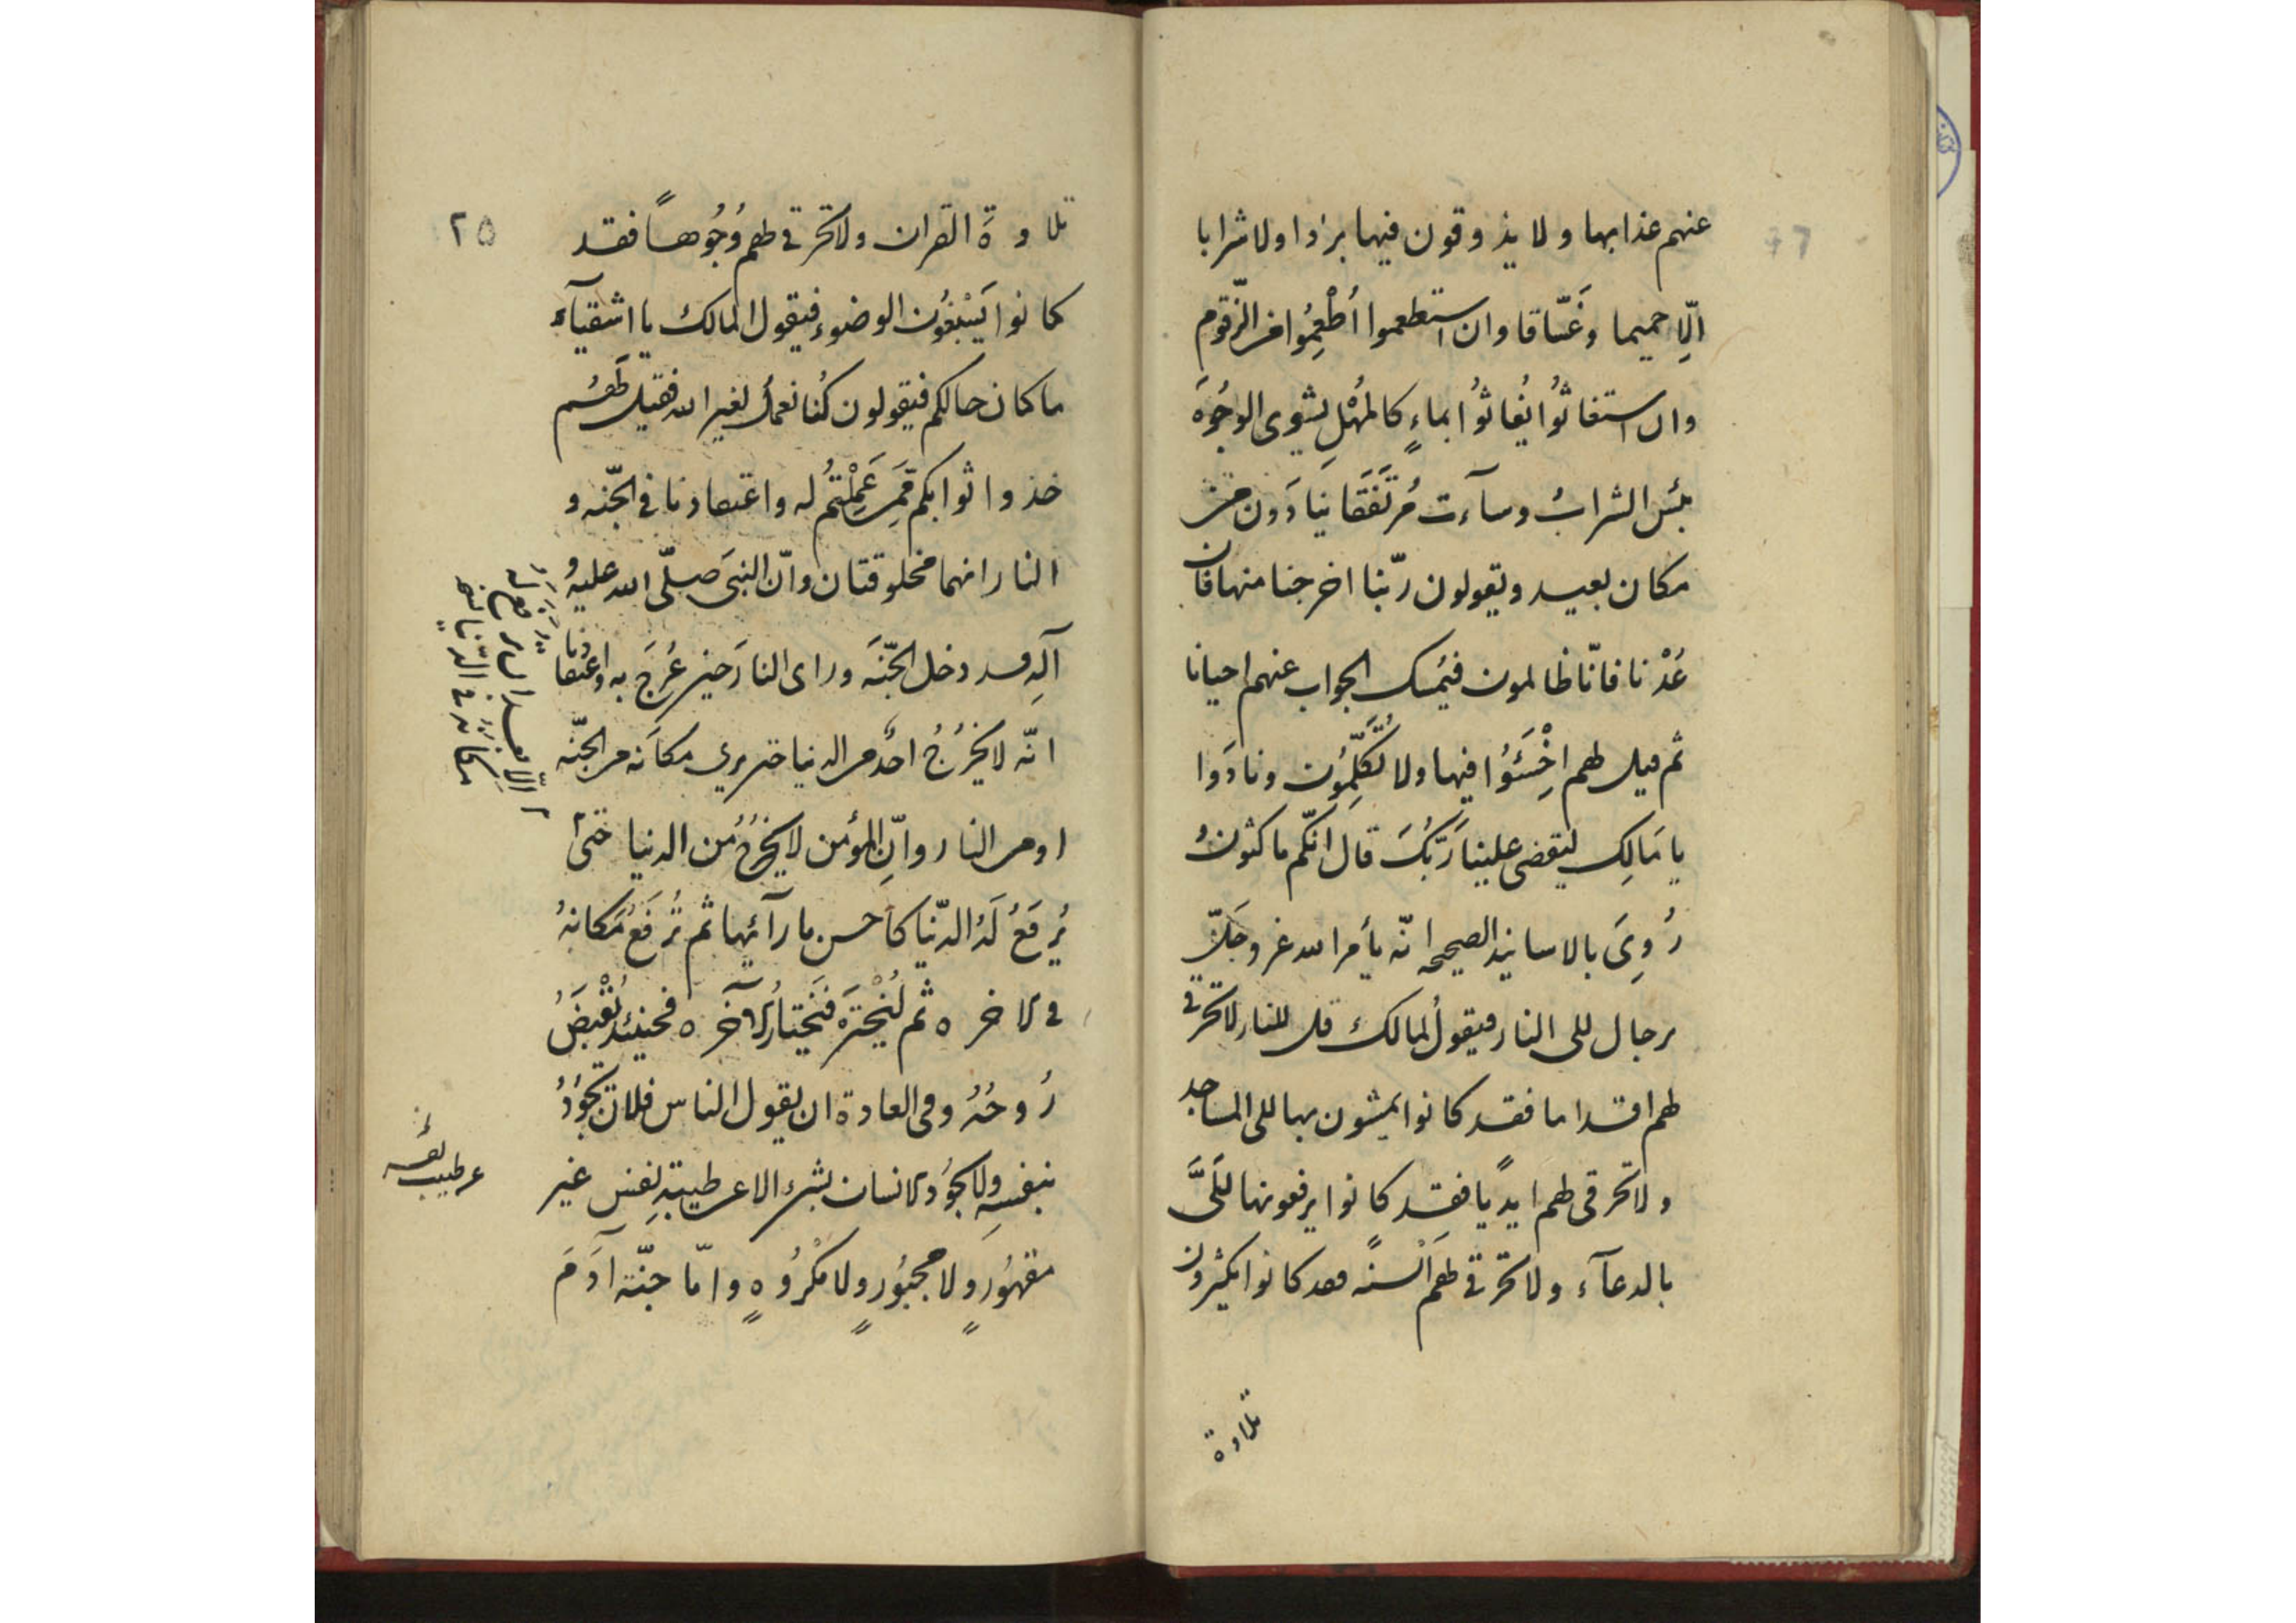 عنهم عذابها ولا يذوقون فيها بردا ولا شرابا
الّا حميما وغَسّاقا وان استطعموا أُطْعِمُوا من الزّقوم
وان استغاثُوا يُغاثُوا بماءٍ كالمُهْلِ يشوى الوجُوهَ
بئس الشرابُ وسآءت مُرتَفَقَا ينادَون من
مكان بعيد ويقولون ربّنا اخرجنا منها فان
عُدْنا فانّا ظالمون فيُمسك الجواب عنهم احيانا
ثم قيل لهم اخْسَئوُا فيها ولا تُكَلِّمُون ونادَوا
يا مَالِك ليقض علينا رَبُّكَ قال انّكم ماكثونُ
رُوِىَ بالاسانيد الصحيحه انّه يأمر الله عز وجَلّ
برجال الى النار فيقولُ لمالك قل للنار لا تحرقى
لهم اقداما فقد كانوا يمشون بها الى المساجد
ولا تحرقى لهم ايديًا فقد كانوا يرفعونها الَىَّ
بالدعآء ولا تحرقى لهم اَلْسنةً فقد كانوا يكثرون
تلاوة
٢٥
تلاوةَ القران ولا تحرقى لهم وُجُوهاً فقد
كانوا يَسْبَغُون الوضوء فيقول المالك يا اشقيآء
ما كان حالكم فيقولون كُنا نعملُ لغير الله فقيل لَهُم
خذوا ثوابكم مَمن عَمِلْتُم له واعتقادنا فى الجنّه و
النار انهما مخلوقتان وانّ النبىَ صلّى الله عليه و
آلِه قد دخل الجّنَه وراى النارَ حين عُرِجَ به واعتقادنا
انّه لا يَخْرُجُ احدٌ من الدنيا حتى يرى مكانَه من الجنّه
او من النار وانّ المؤمن لا يخرُجُ من الدنيا حتىّ
يُرفَعُ لَهُ الدّنيا كاَحسن ما رآئها ثم تُرفَعُ مَكانهُ
فى الاخره ثم يُخَيَّرُ فَيَختارُ الآخره فحينئذ تُقْبَضُ
رُوحُهُ وفى العادة ان يقول الناس فلان يَجُودُ
بنفسِه ولا يجُودُ الانسان بشىء الا عن طيبةِ نفس غير
مقهُورٍ ولا مجبُورٍ ولا مكْرُوهٍ وامّا جنّة آدَمَ
عن طيب نفسه